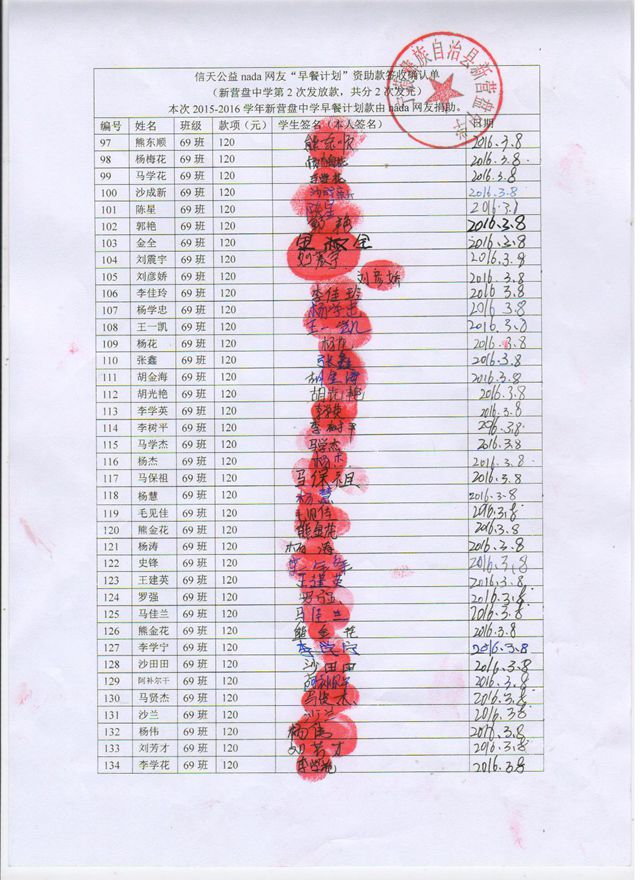 信天公益nada网友“早餐计划”资助款签收确认单
（新营盘中学第2次发放款，共分2次发完）
本次2015-2016学年新营盘中学早餐计划款由nada网友捐助。
族自治县新营盘
编号 姓名 班级 款项（元） 学生签名（本人签名） 日期
97 熊东顺 69班 120 2016.3.8
98 杨梅花 69班 120 2016.3.8
99 马学花 69班 120 2016.3.8
100 沙成新 69班 120 沙成新 2016.3.8
101 陈星 69班 120 陈星 2016.3.8
102 郭艳 69班 120 郭艳 2016.3.8
103 金全 69班 120 2016.3.8
104 刘震宇 69班 120 刘震宇 2016.3.8
105 刘彦娇 69班 120 刘彦娇 2016.3.8
106 李佳玲 69班 120 李佳玲 2016.3.8
107 杨学忠 69班 120 杨学忠 2016.3.8
108 王一凯 69班 120 王一凯 2016.3.8
109 杨花 69班 120 杨花 2016.3.8
110 张鑫 69班 120 张鑫 2016.3.8
111 胡金海 69班 120 胡金海 2016.3.8
112 胡光艳 69班 120 胡光艳 2016.3.8
113 李学英 69班 120 李学英 2016.3.8
114 李树平 69班 120 李树平 2016.3.8
115 马学杰 69班 120 马学杰 2016.3.8
116 杨杰 69班 120 杨杰 2016.3.8
117 马保祖 69班 120 马保祖 2016.3.8
118 杨慧 69班 120 杨慧 2016.3.8
119 毛见佳 69班 120 毛见佳 2016.3.8
120 熊金花 69班 120 熊金花 2016.3.8
121 杨涛 69班 120 杨涛 2016.3.8
122 史锋 69班 120 2016.3.8
123 王建英 69班 120 王建英 2016.3.8
124 罗强 69班 120 罗强 2016.3.8
125 马佳兰 69班 120 马佳兰 2016.3.8
126 熊金花 69班 120 熊金花 2016.3.8
127 李学宁 69班 120 李学宁 2016.3.8
128 沙田田 69班 120 沙田田 2016.3.8
129 阿补尔干 69班 120 2016.3.8
130 马贤杰 69班 120 2016.3.8
131 沙兰 69班 120 沙兰 2016.3.8
132 杨伟 69班 120 杨伟 2016.3.8
133 刘芳才 69班 120 刘芳才 2016.3.8
134 李学花 69班 120 李学花 2016.3.8